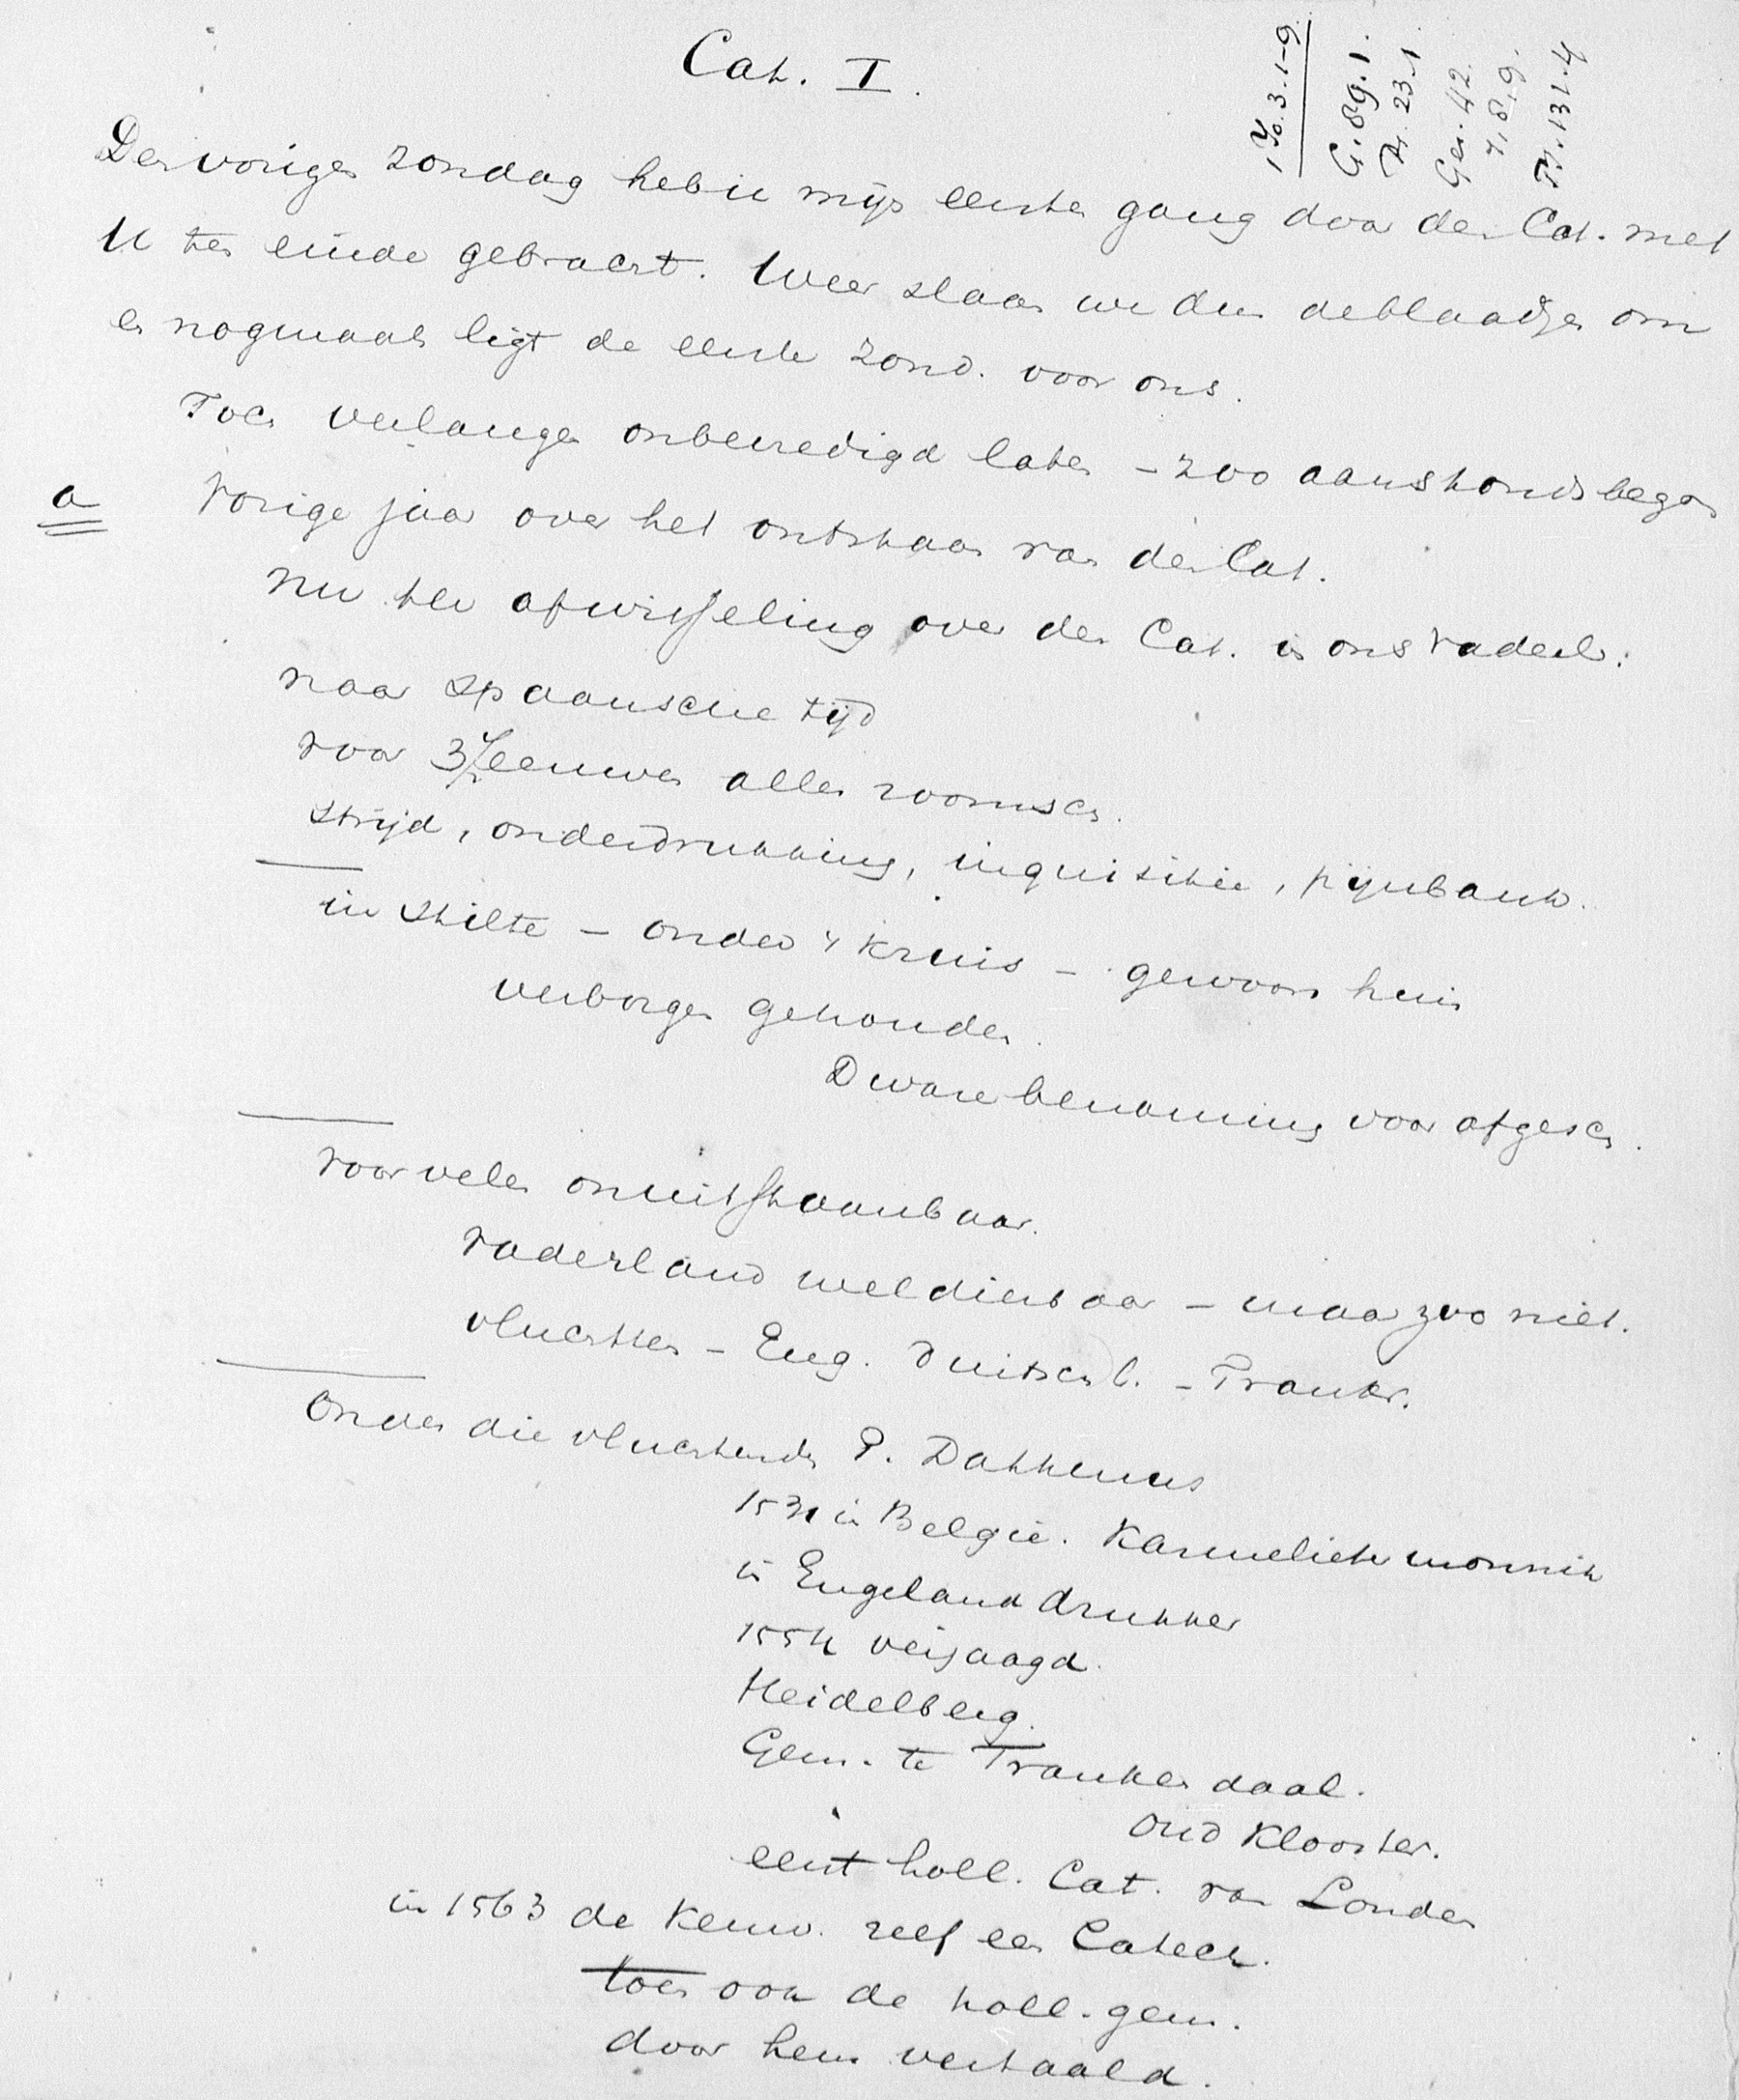 Cat. I.
1 Jo. 3.1-9.
G. 89.1.
Ps. 23.1
Gez. 42.
7, 8, 9.
Ps. 131.4
Den vorigen Zondag heb ik mijn eersten gang door den Cat. met
U ten einde gebracht. Weer slaan we dus de blaadjes om
en nogmaals ligt de eerste Zond. voor ons.
Toen verlangen onbevredigd laten - zoo aanstonds begon
a vorige jaar over het ontstaan van den Cat.
nu ter afwisseling over den Cat. in ons vaderl.
naar Spaansche tijd
voor 3½ eeuwen alles roomsch.
strijd, onderdrukking, inquisitie, pijnbank.
in stilte - onder 't kruis - gewoon huis
verborgen gehouden.
Dware benaming voor afgesch.
voor velen onuitstaanbaar.
vaderland wel dierbaar - maar zoo niet.
vluchtten - Eng. Duitschl. - Frankr.
Onder die vluchtends P. Dathenus
1531 in België. Karmelieter monnik
in Engeland drukker
1554 verjaagd.
Heidelberg.
Gem. te Frankendaal.
Oud Klooster.
eerst holl. Cat. van Londen
in 1563 de Keurv. zelf een Catech.
toen ook de holl. gem.
door hem vertaald.